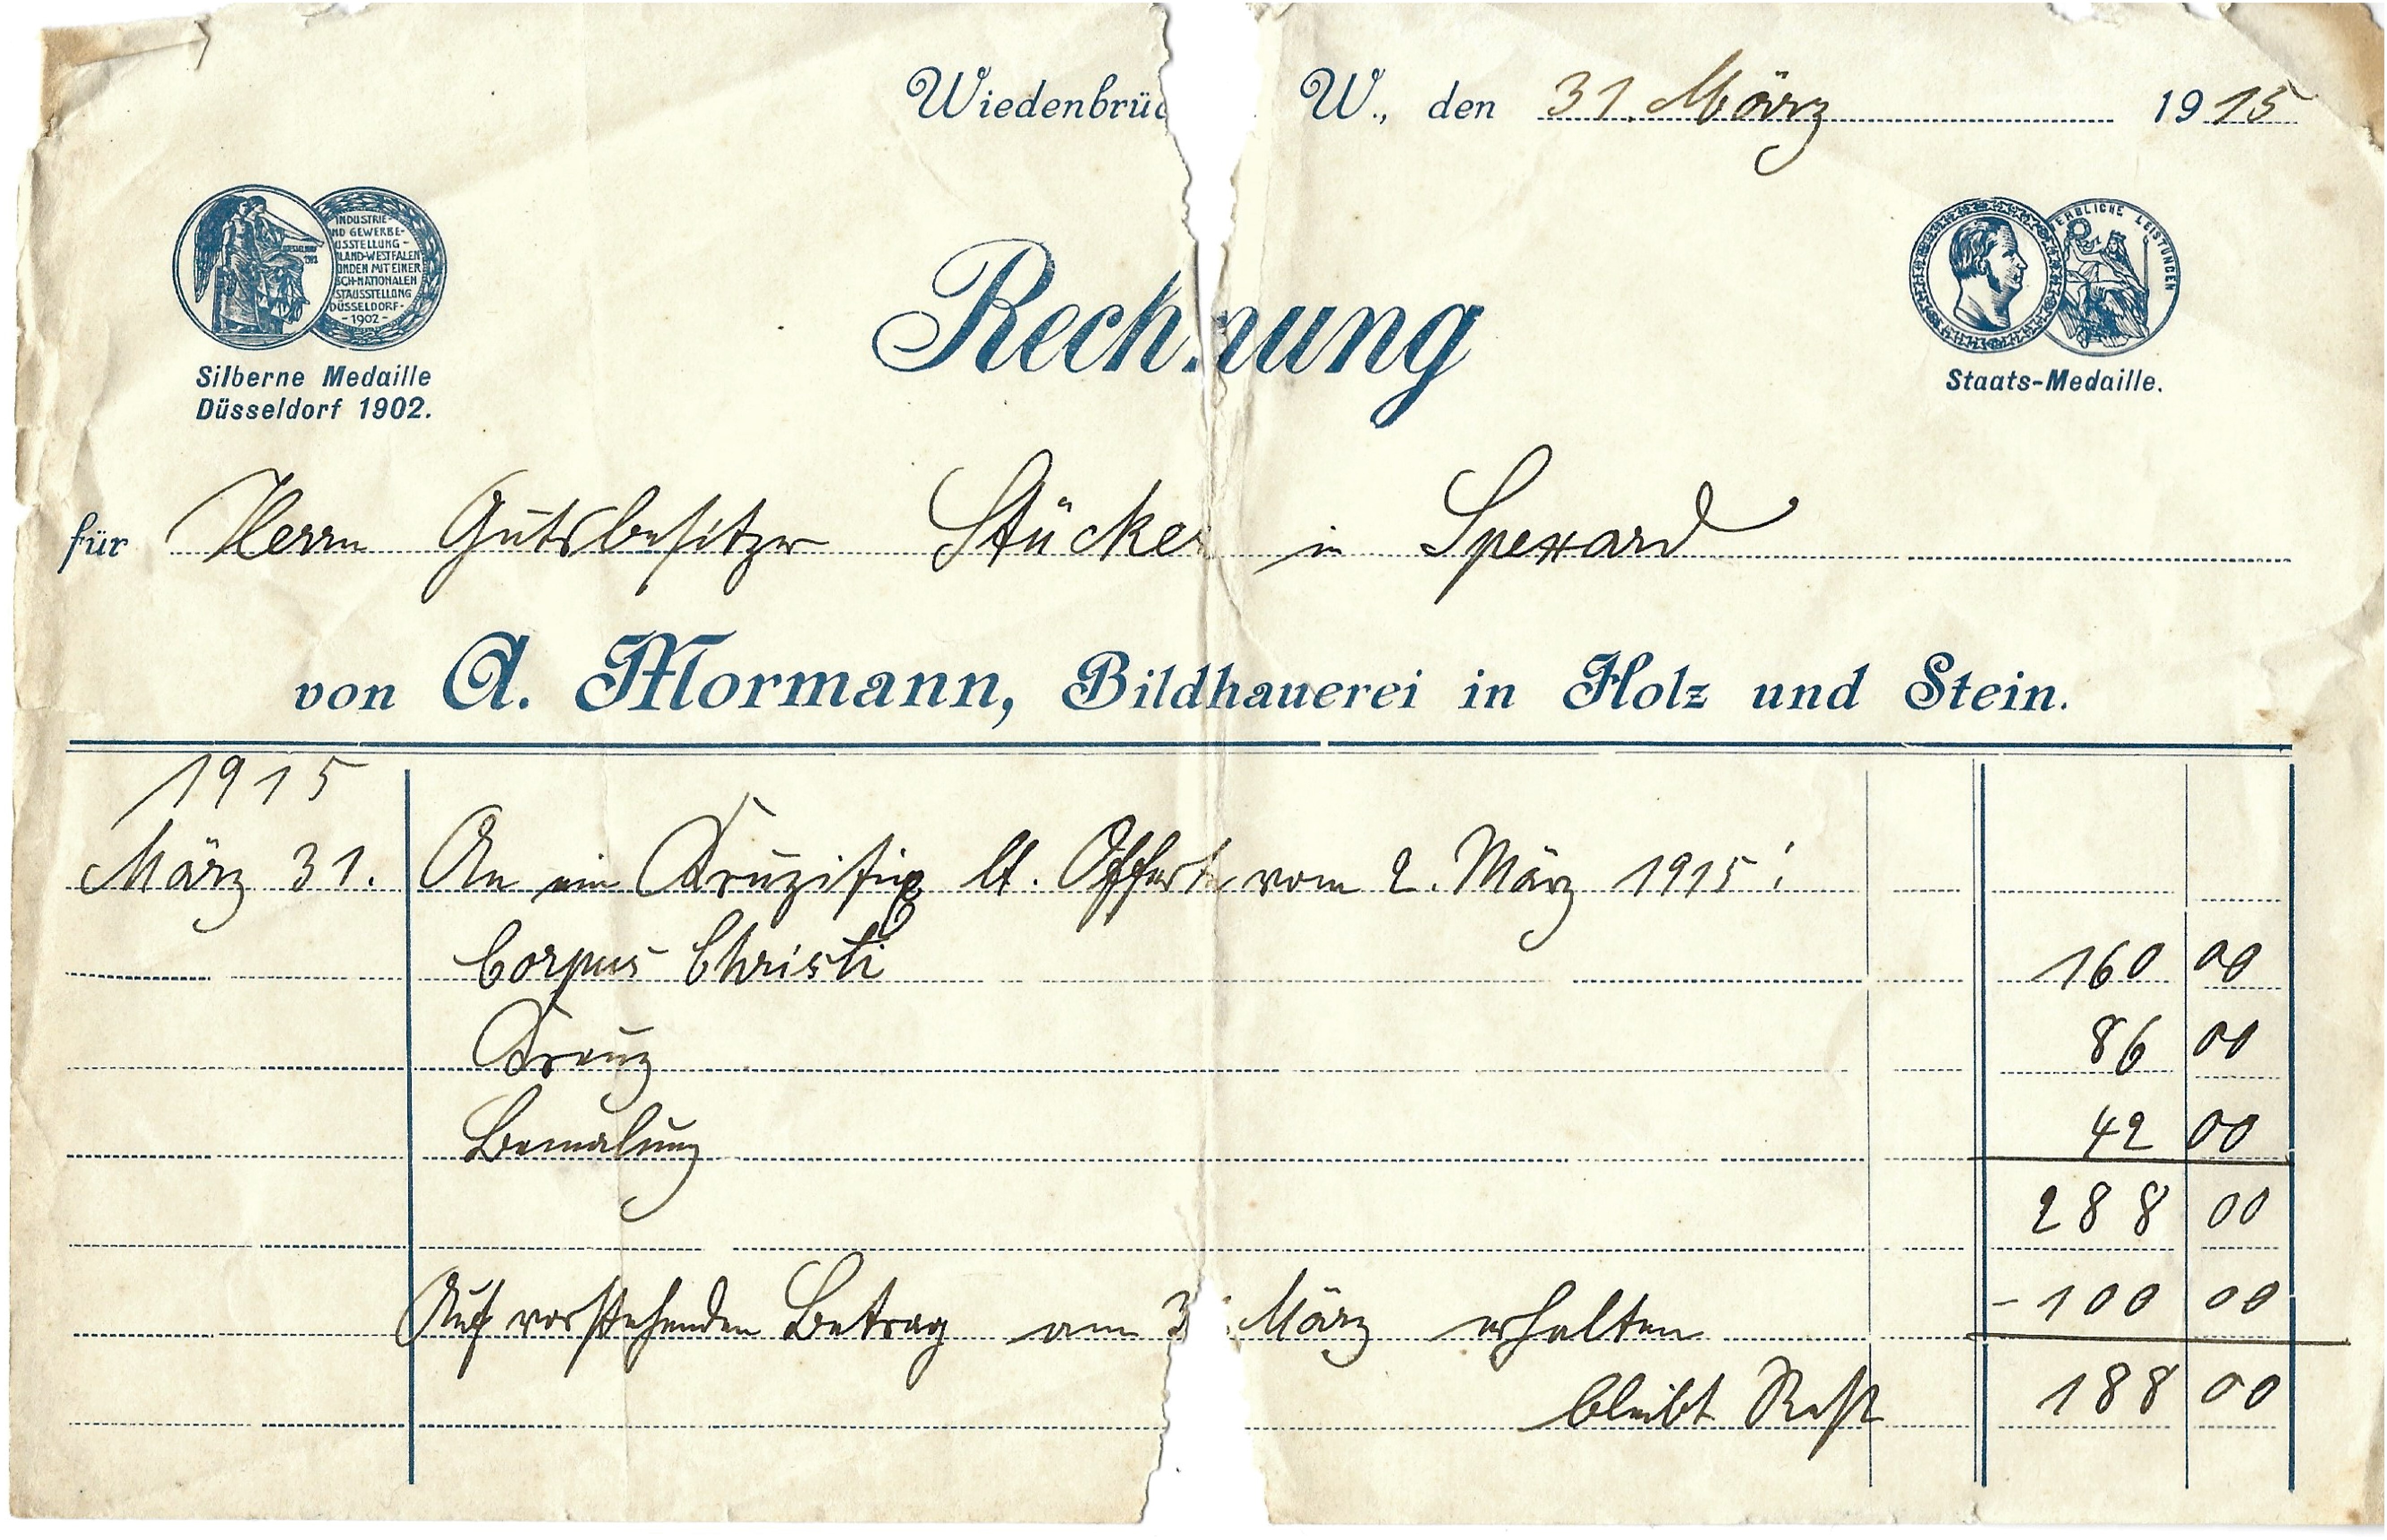 Wiedenbrüc W., den 31. März 1915
INDUSTRIE-
ND GEWERBE-
USSTELLUNG-
LAND-WESTFALEN
NDEN MIT EINER
SCH-NATIONALEN
STAUSSTELLUNG
DÜSSELDORF-
-1902-
ERBLICHE LEISTUNGEN
Silberne Medaille
Düsseldorf 1902.
Rechnung
Staats-Medaille.
für Herrn Gutsbesitzer Stücker in Spexard
von A. Mormann, Bildhauerei in Holz und Stein.
1915
März 31. An ein Kruzifix lt. Offerte vom 2. März 1915:
Corpus Christi 160 00
Kreuz 86 00
Bemalung 42 00
288 00
Auf vorstehenden Betrag am 3 März erhalten - 100 00
bleibt Rest 188 00